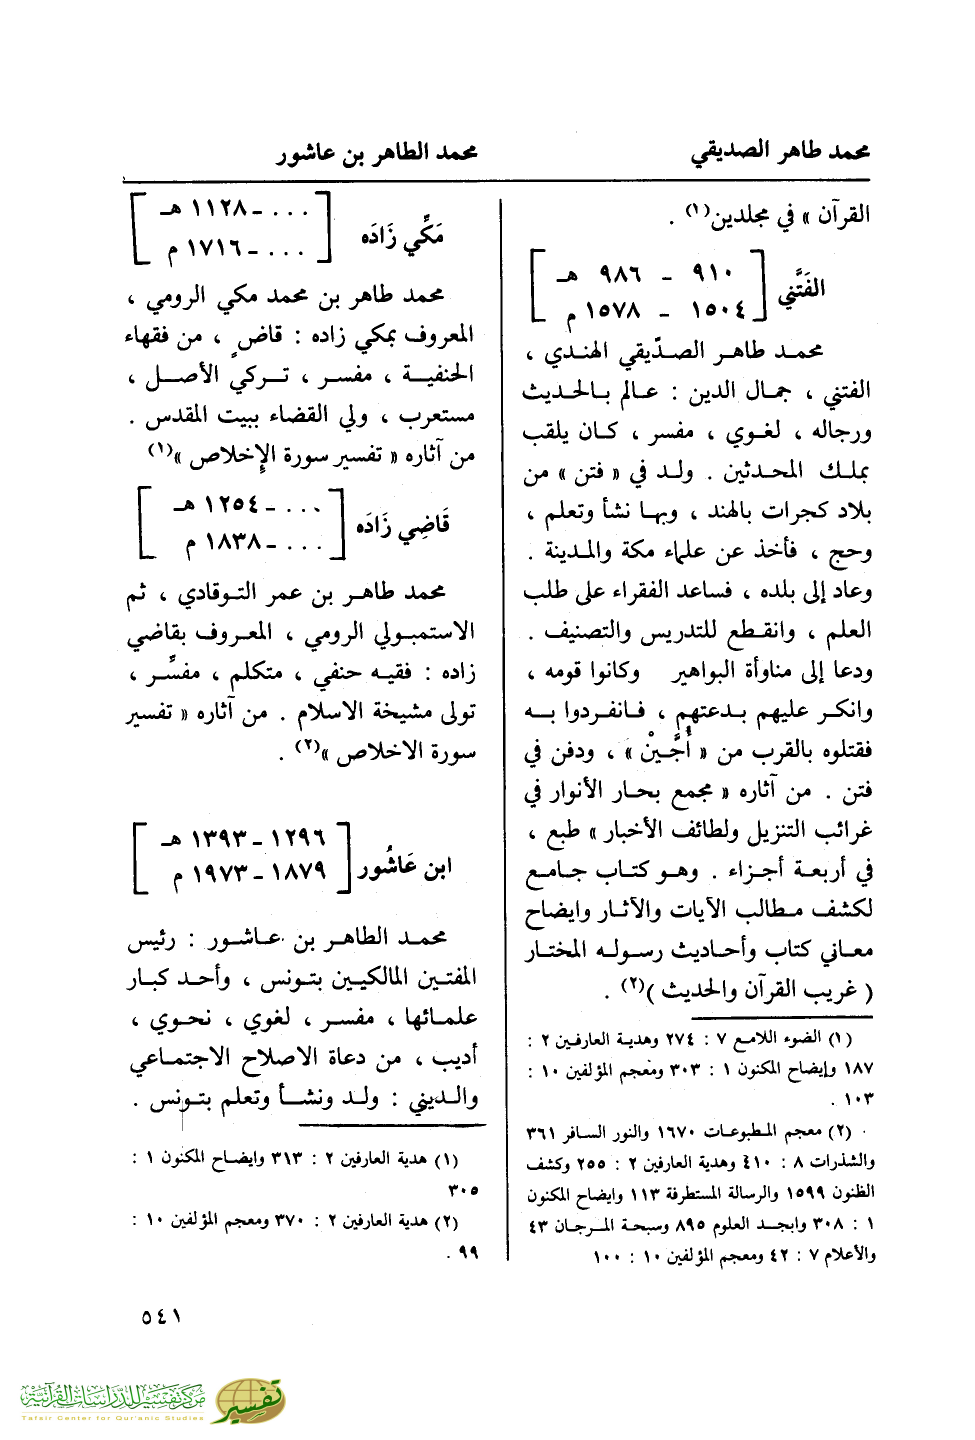 محمد طاهر الصديقي
محمد الطاهر بن عاشور
القرآن » في مجلدين(١) .
الفَتَّني
[ ٩١٠ - ٩٨٦ هـ
١٥٠٤ - ١٥٧٨ م ]
محمد طاهر الصدّيقي الهندي ،
الفتني ، جمال الدين : عالم بالحديث
ورجاله ، لغوي ، مفسر ، كان يلقب
بملك المحدثين . ولد في « فتن » من
بلاد كجرات بالهند ، وبها نشأ وتعلم ،
وحج ، فأخذ عن علماء مكة والمدينة .
وعاد إلى بلده ، فساعد الفقراء على طلب
العلم ، وانقطع للتدريس والتصنيف .
ودعا إلى مناوأة البواهير وكانوا قومه ،
وانكر عليهم بدعتهم ، فانفردوا به
فقتلوه بالقرب من « أُجَّيْنْ » ، ودفن في
فتن . من آثاره « مجمع بحار الأنوار في
غرائب التنزيل ولطائف الأخبار » طبع ،
في أربعة أجزاء . وهو كتاب جامع
لكشف مطالب الآيات والآثار وايضاح
معاني كتاب وأحاديث رسوله المختار
( غريب القرآن والحديث )(٢) .
(١) الضوء اللامع ٧ : ٢٧٤ وهدية العارفين ٢ :
١٨٧ وإيضاح المكنون ١ : ٣٠٣ ومعجم المؤلفين ١٠ :
١٠٣ .
(٢) معجم المطبوعات ١٦٧٠ والنور السافر ٣٦١
والشذرات ٨ : ٤١٠ وهدية العارفين ٢ : ٢٥٥ وكشف
الظنون ١٥٩٩ والرسالة المستطرفة ١١٣ وايضاح المكنون
١ : ٣٠٨ وابجد العلوم ٨٩٥ وسبحة المرجان ٤٣
والأعلام ٧ : ٤٢ ومعجم المؤلفين ١٠ : ١٠٠
مَكِّي زَادَه
[ ... - ١١٢٨ هـ
... - ١٧١٦ م ]
محمد طاهر بن محمد مكي الرومي ،
المعروف بمكي زاده : قاضٍ ، من فقهاء
الحنفية ، مفسر ، تركي الأصل ،
مستعرب ، ولي القضاء ببيت المقدس .
من آثاره « تفسير سورة الإخلاص »(١)
قَاضِي زَادَه
[ ... - ١٢٥٤ هـ
... - ١٨٣٨ م ]
محمد طاهر بن عمر التوقادي ، ثم
الاستمبولي الرومي ، المعروف بقاضي
زاده : فقيه حنفي ، متكلم ، مفسِّر ،
تولى مشيخة الاسلام . من آثاره « تفسير
سورة الاخلاص »(٢) .
ابن عَاشُور
[ ١٢٩٦ - ١٣٩٣ هـ
١٨٧٩ - ١٩٧٣ م ]
محمد الطاهر بن عاشور : رئيس
المفتين المالكيين بتونس ، وأحد كبار
علمائها ، مفسر ، لغوي ، نحوي ،
أديب ، من دعاة الاصلاح الاجتماعي
والديني : ولد ونشأ وتعلم بتونس .
(١) هدية العارفين ٢ : ٣١٣ وايضاح المكنون ١ :
٣٠٥
(٢) هدية العارفين ٢ : ٣٧٠ ومعجم المؤلفين ١٠ :
٩٩ .
٥٤١
مركز تفسير للدراسات القرآنية
Tafsir Center for Qur'anic Studies
تفسير